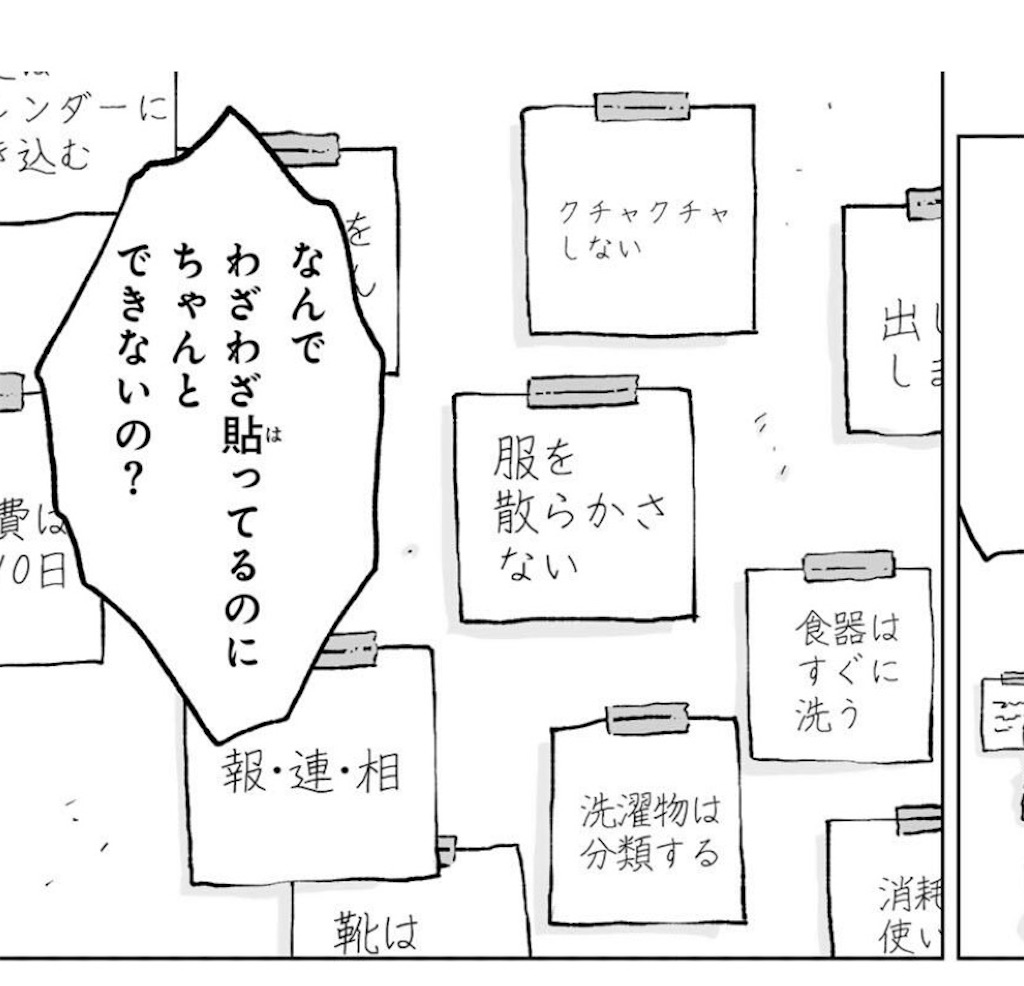 なんで
わざわざ貼ってるのに
ちゃんと
できないの?
レンダーに
き込む
を
クチャクチャ
しない
出し
しま
服を
散らかさ
ない
費は
10日
食器は
すぐに
洗う
報・連・相
洗濯物は
分類する
靴は
消耗
使い